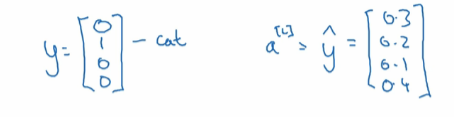 y = [0 1 0 0] - cat
a^[L] = ŷ = [0.3 0.2 0.1 0.4]